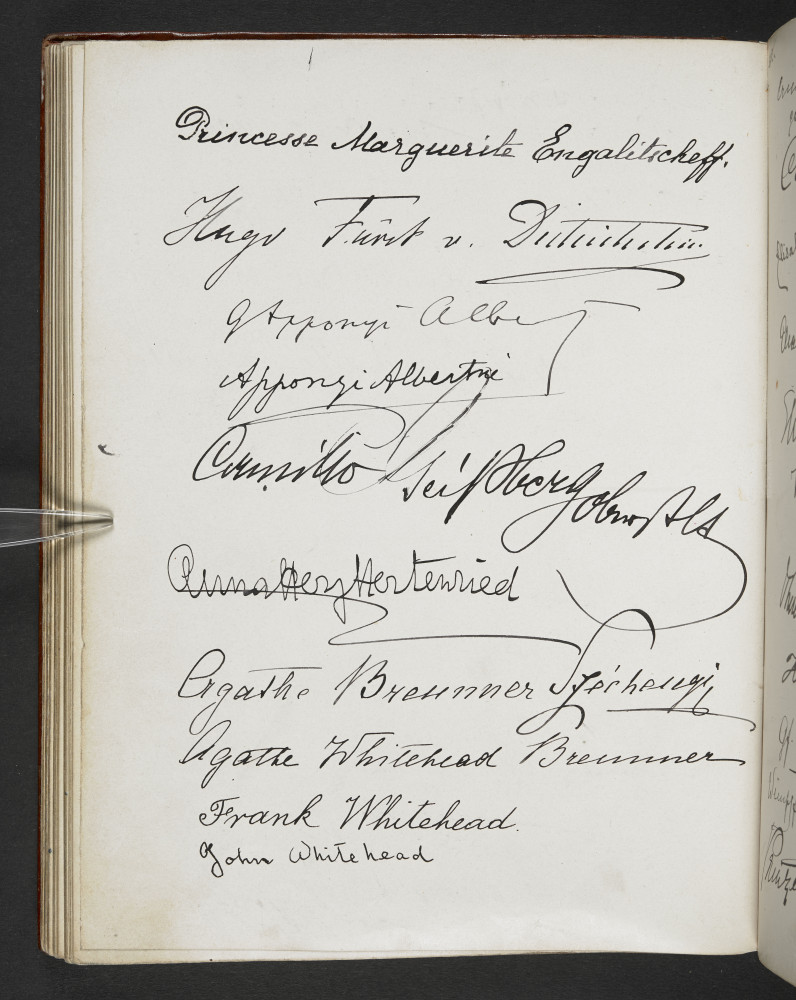 Princesse Marguerite Engalitscheff.
Hugo Fürst v. Dietrichstein
G Apponyi Albert
Apponyi Albertné
Camillo
Anna Herz Hertenried
Agathe Breunner Széchenyi
Agathe Whitehead Breunner
Frank Whitehead.
John Whitehead